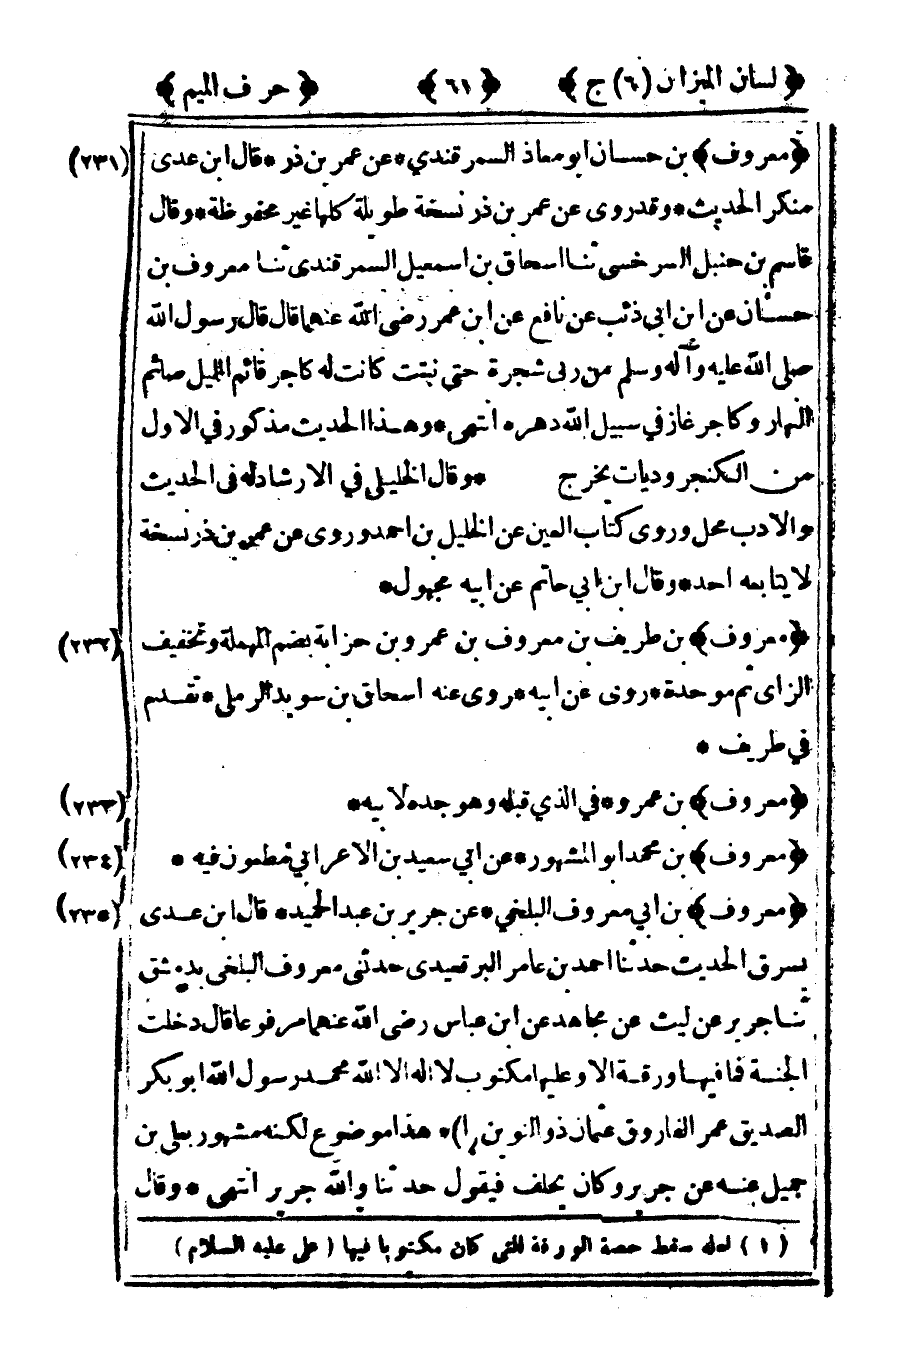 ﴿ لسان الميزان (٦) ج ﴾ ﴿ ٦١ ﴾ ﴿ حرف الميم ﴾
(٢٣١) ﴿ معروف ﴾ بن حسان ابو معاذ السمرقندي * عن عمر بن ذر * قال ابن عدى
منكر الحديث * وقد روى عن عمر بن ذر نسخة طويلة كلها غير محفوظة * وقال
قاسم بن حنبل السرخسي ثنا اسحاق بن اسمعيل السمرقندى ثنا معروف بن
حسان عن ابن ابي ذئب عن نافع عن ابن عمر رضى الله عنهما قال قال رسول الله
صلى الله عليه وآله وسلم من ربى شجرة حتى نبتت كانت له كاجر قائم الليل صائم
النهار وكاجر غاز في سبيل الله دهره انتهى * وهذا الحديث مذكور في الاول
من الكنجروديات يخرج * وقال الخليلي في الارشاد له فى الحديث
والادب محل وروى كتاب العين عن الخليل بن احمد وروى عن عمر بن ذر نسخة
لا يتابعه احد * وقال ابن ابي حاتم عن ابيه مجهول *
(٢٣٢) ﴿ معروف ﴾ بن طريف بن معروف بن عمرو بن حزابة بضم المهملة وتخفيف
الزاى ثم موحدة * روى عن ابيه * روى عنه اسحاق بن سويد الرملى * تقدم
في طريف *
(٢٣٣) ﴿ معروف ﴾ بن عمرو * في الذي قبله وهو جده لابيه *
(٢٣٤) ﴿ معروف ﴾ بن محمد ابو المشهور * عن ابي سعيد بن الاعرابي مطعون فيه *
(٢٣٥) ﴿ معروف ﴾ بن ابي معروف البلخي * عن جرير بن عبد الحميد * قال ابن عدى
يسرق الحديث حدثنا احمد بن عامر البرقعيدى حدثنى معروف البلخى بدمشق
ثنا جرير عن ليث عن مجاهد عن ابن عباس رضى الله عنهما مرفوعا قال دخلت
الجنة فما فيها ورقة الا وعليها مكتوب لا اله الا الله محمد رسول الله ابو بكر
الصديق عمر الفاروق عثمان ذو النورين (١) * هذا موضوع لكنه مشهور بعلي بن
جميل عنه عن جرير وكان يحلف فيقول حدثنا والله جرير انتهى * وقال
(١) لعله سقط حصة الورقة التي كان مكتوبا فيها (علي عليه السلام)